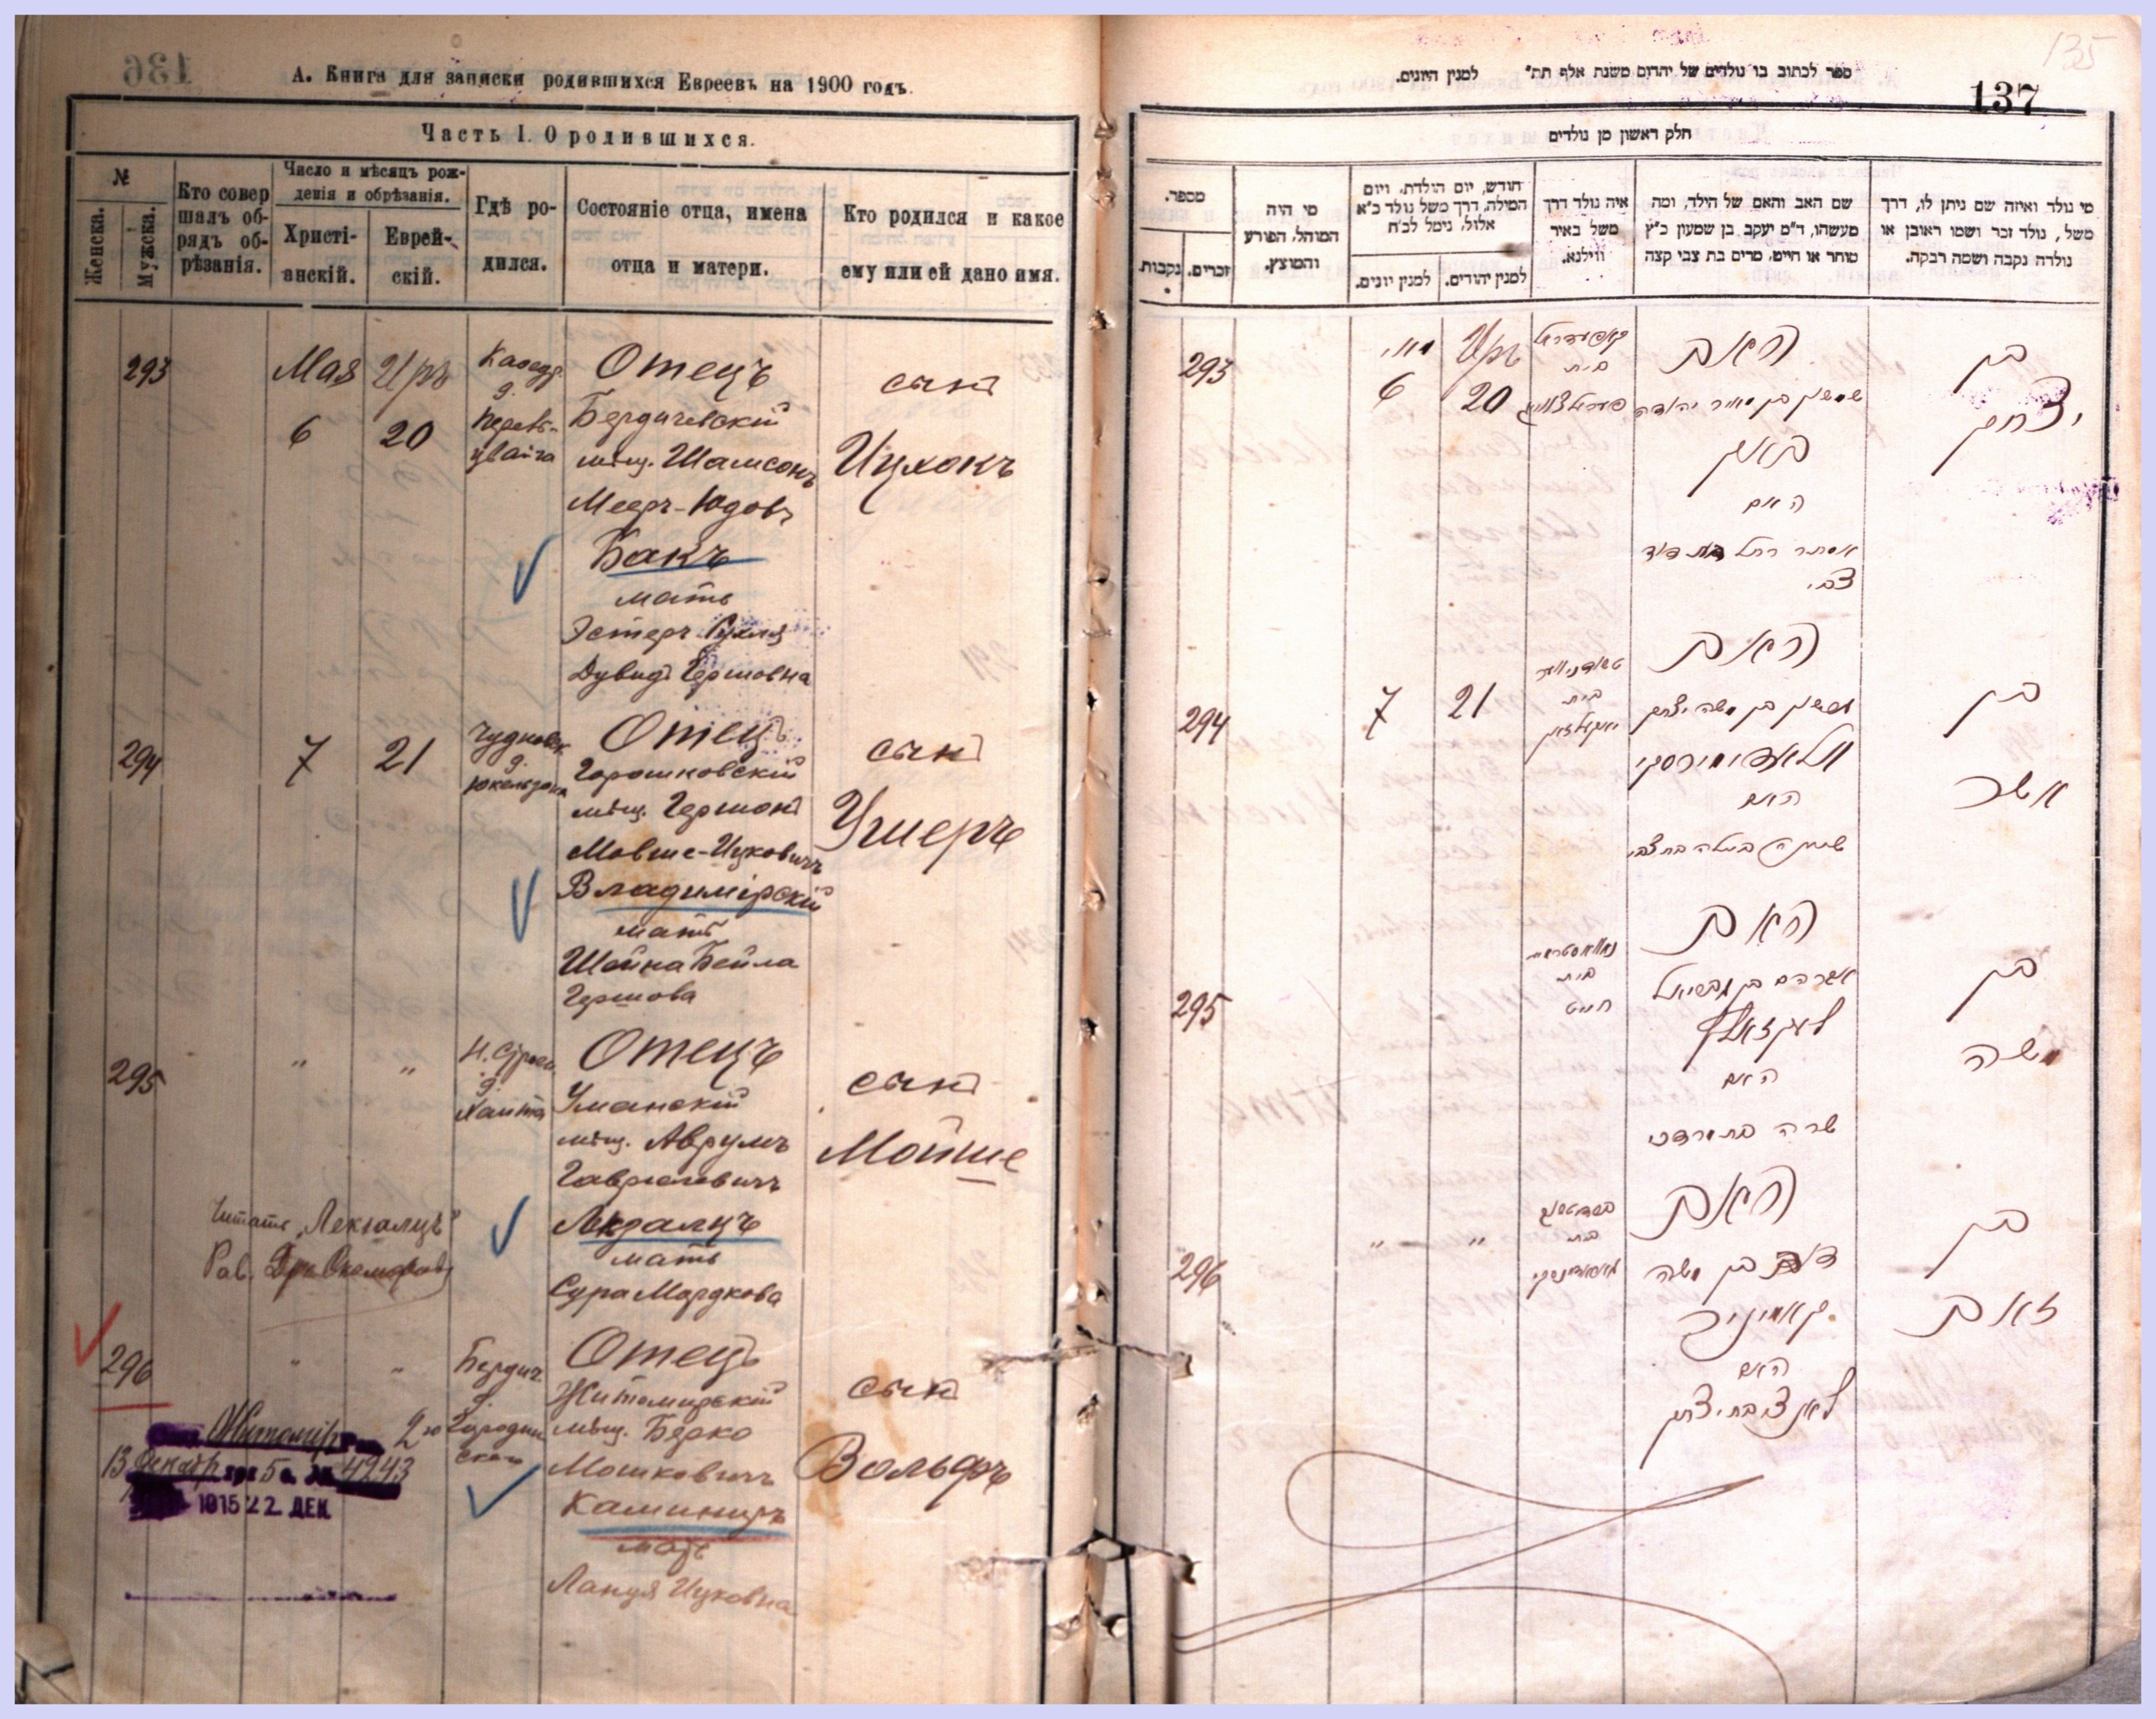 136
А. Книга для записки родившихся Евреевъ на 1900 годъ.
Часть I. О родившихся.
№
Женска.
Мужска.
Кто совершалъ обрядъ обрѣзанія.
Число и мѣсяцъ рожденія и обрѣзанія.
Христіанскій.
Еврейскій.
Гдѣ родился.
Состояніе отца, имена
отца и матери.
Кто родился и какое
ему или ей дано имя.
293
Мая
Иръ
6
20
Каѳедр.
д.
Отецъ
Бердичевскій
мѣщ. Шамсонъ
Мееръ-Юдовъ
Бакъ
мать
Эстеръ Рухля
Дувидъ Гершовна
сынъ
Ицхокъ
294
7
21
Чудновск.
д.
Отецъ
Горошковскій
мѣщ. Гершонъ
Мовше-Ицковичъ
Владимірскій
мать
Шейна Бейла
Гершова
сынъ
Ушеръ
295
"
"
д.
Хаита
Отецъ
Уманскій
мѣщ. Аврумъ
Гаврилевичъ
Лекзалцъ
мать
Сура Мордкова
сынъ
Мойше
Читать „Лекзалцъ"
Рав.
296
"
"
Бердич.
д.
Городин
скаго
Отецъ
Житомирскій
мѣщ. Берко
Мошковичъ
Каминиръ
мать
Ланця Ицковна
сынъ
Вольфъ
Житомір
13 Декабр 5 4243
1915 22. ДЕК
135
137
ספר לכתוב בו נולדים של יהדום משנת אלף תת" למנין היונים.
חלק ראשון מן נולדים
מספר.
נקבות.
זכרים.
מי היה
המוהל, הפורע
והמוצץ.
חודש, יום הולדת, ויום
המילה, דרך משל נולד כ"א
אלול, נימל לכ"ח
למנין יונים.
למנין יהודים.
איה נולד דרך
משל באיר
ווילנא.
שם האב והאם של הילד, ומה
מעשהו, ד"מ יעקב בן שמעון כ"ץ
סוחר או חייט, מרים בת צבי קצה
מי נולד ואיזה שם ניתן לו, דרך
משל, נולד זכר ושמו ראובן או
נולדה נקבה ושמה רבקה.
293
מאי
Иръ
6
20
בית
האב
שמשון בן מאיר יהודה
באק
האם
אסתר רחל בת דוד
צבי
בן
יצחק
294
7
21
בית
האב
גרשון בן משה יצחק
וולאדימירסקי
האם
שיינה ביילה בת צבי
בן
אשר
295
בית
חייט
האב
אברהם בן גבריאל
האם
שרה בת מרדכי
בן
משה
296
"
"
בית
האב
דוב בן משה
קאמיניר
האם
בת יצחק
בן
זאב